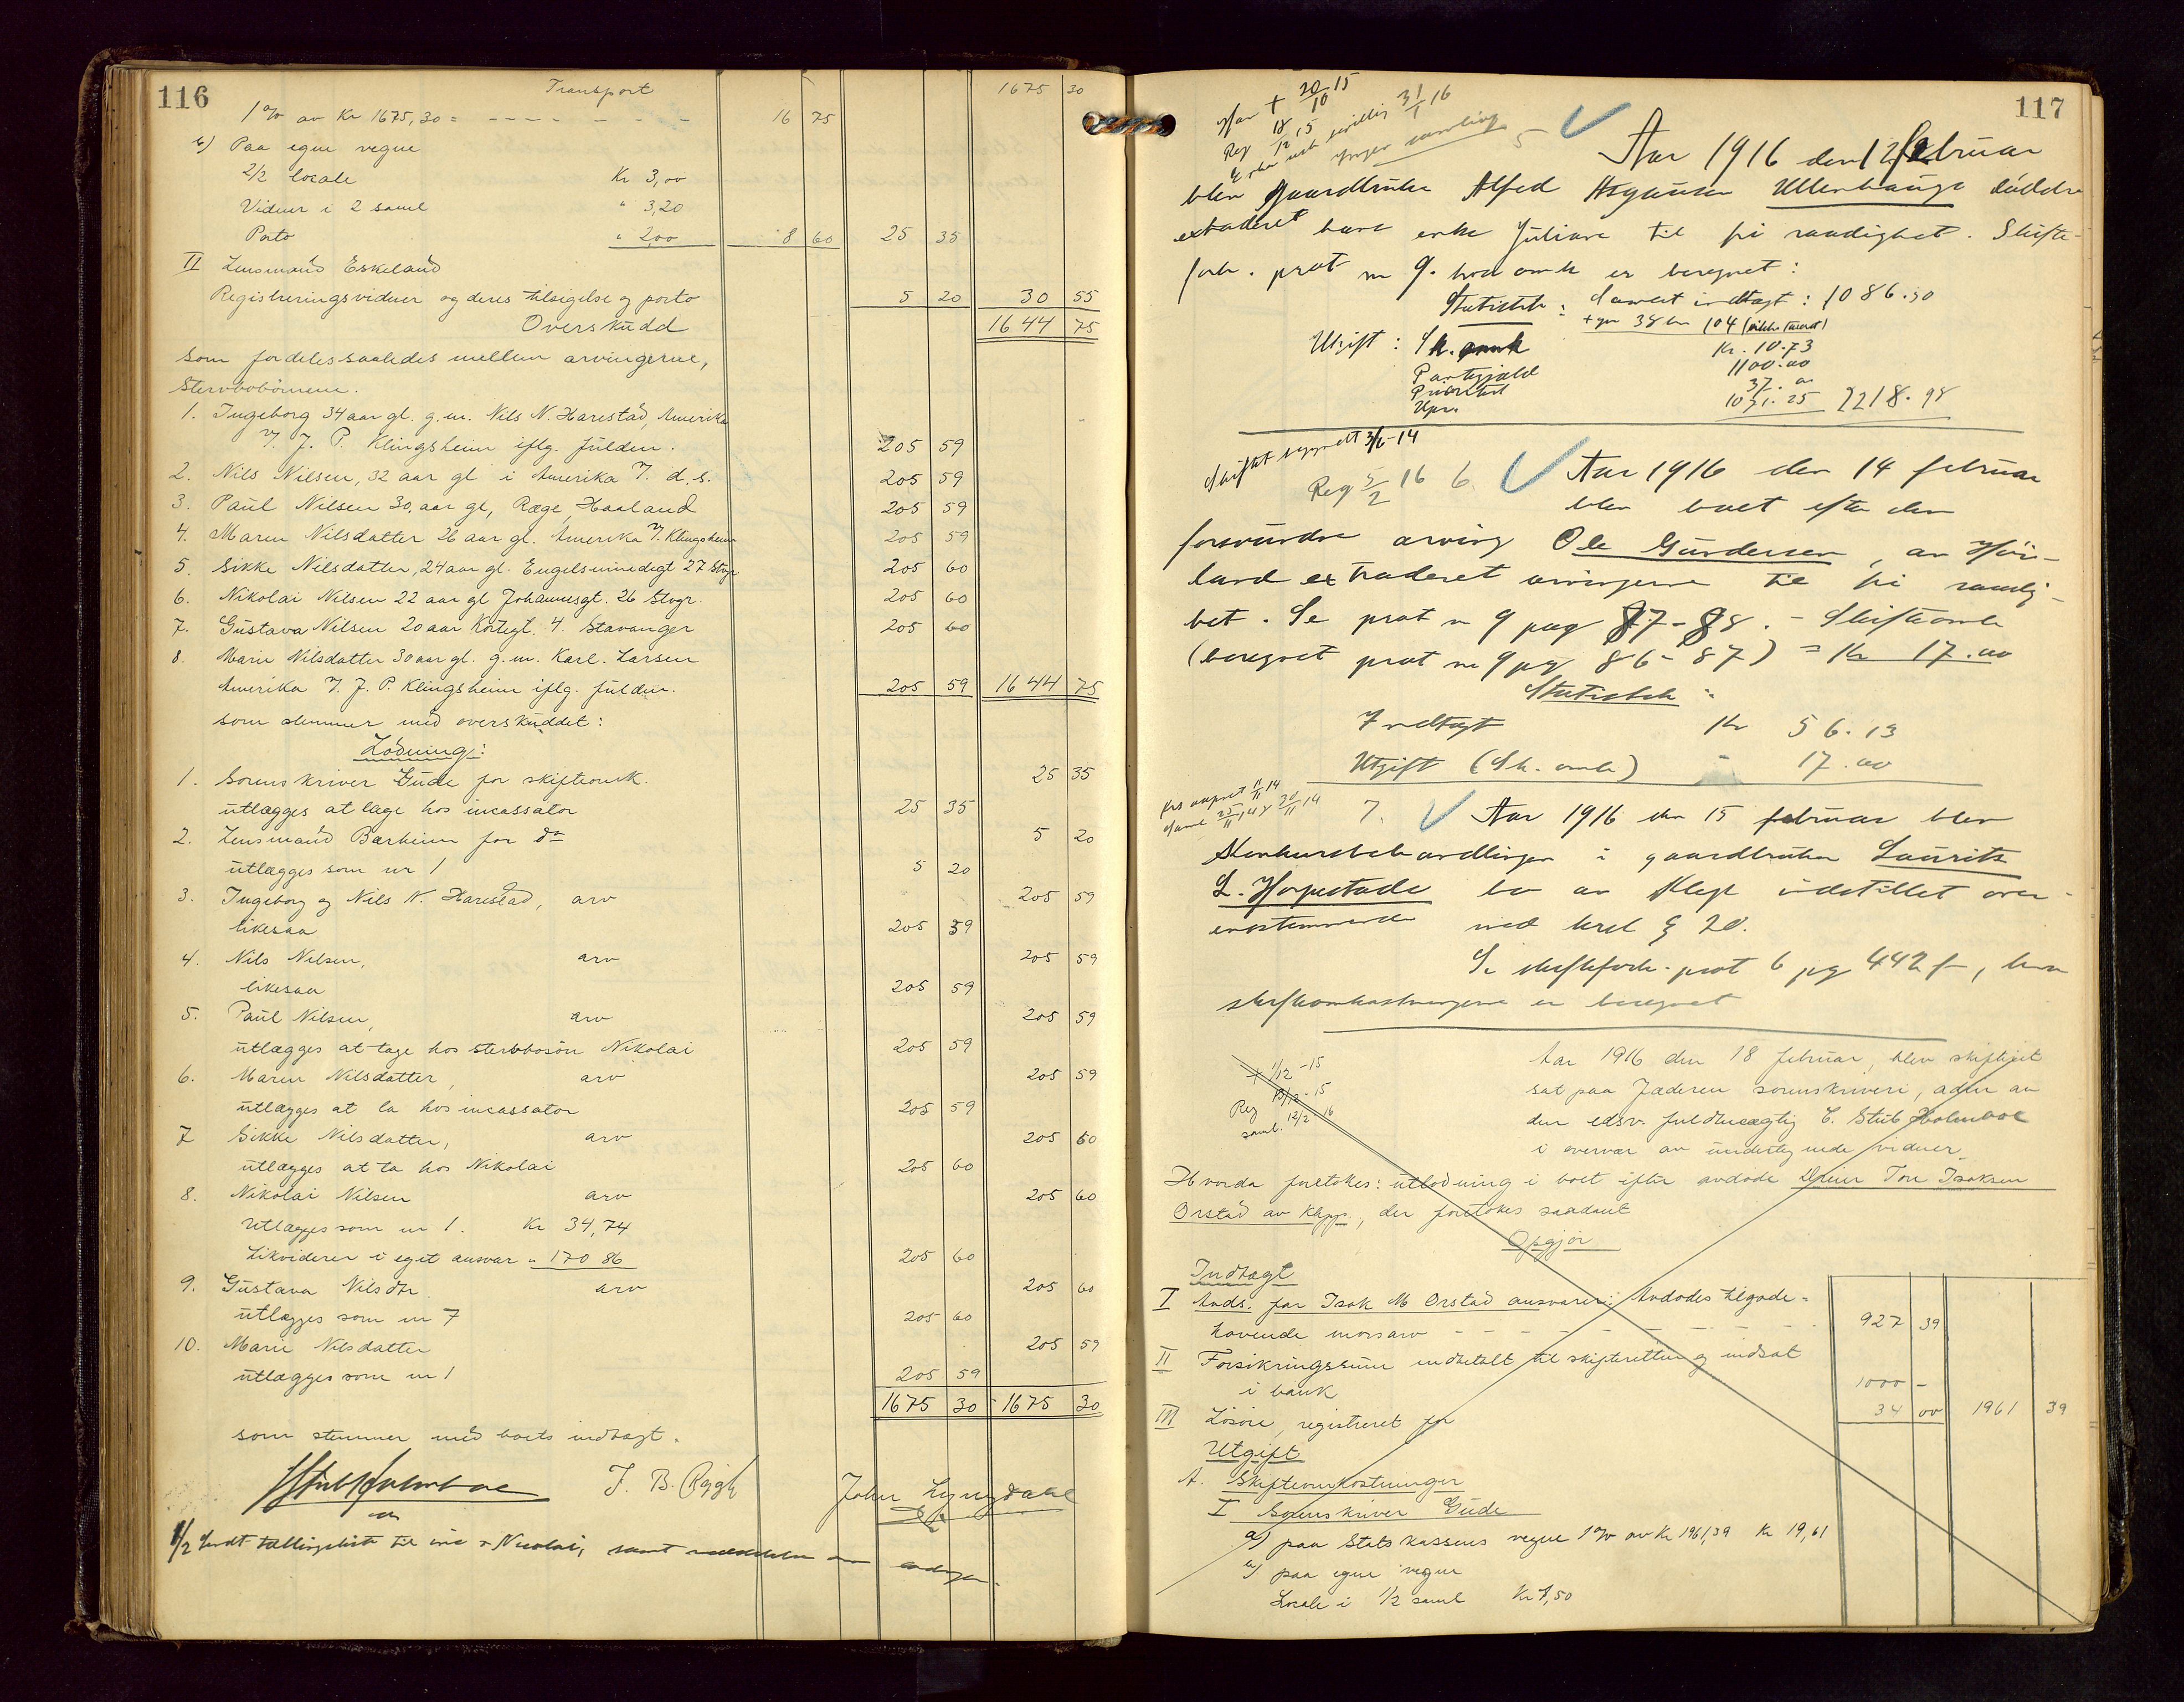 116
Transport 1675 30
1 % av Kr 1675,30 = - - - - - - - 16 75
b) Paa egne vegne
2/2 locale Kr 3,00
Vidner i 2 saml " 3,20
Porto " 2,00 8 60 25 35
II Lensmand Eskeland
Registreringsvidner og deres tilsigelse og porto 5 20 30 55
Overskudd 1644 75
som fordeles saaledes mellem arvingerne,
stervbobörnene.
1. Ingeborg 34 aar gl. g.m. Nils N. Harestad, Amerika
V. J. P. Klingsheim iflg. fuldm. 205 59
2. Nils Nilsen, 32 aar gl i Amerika V. d.s. 205 59
3. Paul Nilsen 30, aar gl, Ræge, Haaland 205 59
4. Maren Nilsdatter 26 aar gl. Amerika V. Klingsheim 205 59
5. Sikke Nilsdatter, 24 aar gl. Engelsminnedegt 27 Stvgr 205 60
6. Nikolai Nilsen 22 aar gl Johannesgt. 26 Stvgr. 205 60
7. Gustava Nilsen 20 aar Kortegt. 4. Stavanger 205 60
8. Marie Nilsdatter 30 aar gl. g.m. Karl. Larsen
Amerika V. J. P. Klingsheim iflg. fuldm. 205 59 1644 75
som stemmer med overskuddet:
Lodning:
1. Sorenskriver Gude for skifteomk. 25 35
utlægges at tage hos incassator 25 35
2. Lensmand Barheim for do 5 20
utlægges som nr 1 5 20
3. Ingeborg og Nils N. Harestad, arv 205 59
likesaa 205 59
4. Nils Nilsen, arv 205 59
likesaa 205 59
5. Paul Nilsen, arv 205 59
utlægges at tage hos stervbosön Nikolai 205 59
6. Maren Nilsdatter, arv 205 59
utlægges at ta hos incassator 205 59
7 Sikke Nilsdatter, arv 205 60
utlægges at ta hos Nikolai 205 60
8. Nikolai Nilsen arv 205 60
Utlægges som nr 1. Kr 34,74
Likviderer i eget ansvar " 170 86 205 60
9. Gustava Nilsdtr. arv 205 60
utlægges som nr 7 205 60
10. Marie Nilsdatter 205 59
utlægges som nr 1 205 59
1675 30 1675 30
som stemmer med boets indtagt.
Stub Holmboe J. B. Rygh John Lyngdahl
117
+ 20/10 15
Reg 18/12 15
31/1 16
Ingen samling
5 Aar 1916 den 12 februar
blev gaardbruker Alfred Asgautsen Ullenhaugs dødsbo
extraderet hans enke Juliane til fri raadighet. Skifte-
forh. prot nr 9. hvor omk er beregnet:
Statistik: Samlet indtagt: 1086.50
Utgift: Sk. omk Kr. 10.73
Pantegjæld 1100.00
Prioritet 37. 00
Upri. 1071.25 2218.98
Skiftet begynt 3/6-14
Reg 5/2 16 6. Aar 1916 den 14 februar
blev boet efter den
forsvundne arving Ole Gundersen, av Höi-
land extraderet arvingerne til fri raadig-
het. Se prot nr 9 pag 87-88. - Skifteomk
(beregnet prot nr 9 pg 86-87) = Kr 17.00
Statistik:
Indtagt Kr 56.13
Utgift (Sk. omk) " 17.00
7. Aar 1916 den 15 februar blev
konkursbehandlingen i gaardbruker Laurits
L. Horpestads bo av Klep indstillet over-
enstemmende med krsl § 20.
Se skifteforh. prot 6 pg 442 f, hvor
skifteomkostningerne er beregnet
+ 1/12-15
Reg 13/12-15
saml. 12/2 16
Aar 1916 den 18 februar, blev skifteret
sat paa Jæderen sorenskriveri, adm av
den edsv. fuldmægtig C. Stub Holmboe
i overvær av undertegnede vidner.
Hvorda foretokes: utlodning i boet efter avdøde Lars Tore Isaksen
Orstad av Klepp, der foretokes saadant
Opgjör
Indtagt
I Avds. far Isak M Orstad ansvarer: Avdødes tilgode-
havende morsarv - - - - - - - - - 927 39
II Forsikringssum indbetalt til skifteretten og indsat
i bank 1000 -
III Lösöre, registreret for 34 00 1961 39
Utgift
A. Skifteomkostninger
I Sorenskriver Gude
a) paa Statskassens vegne 1 % av Kr 1961,39 Kr 19,61
b) paa egne vegne
Locale i 1/2 saml Kr 1,50